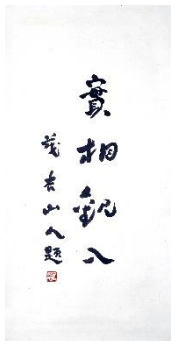 實相觀入
茂吉山人題